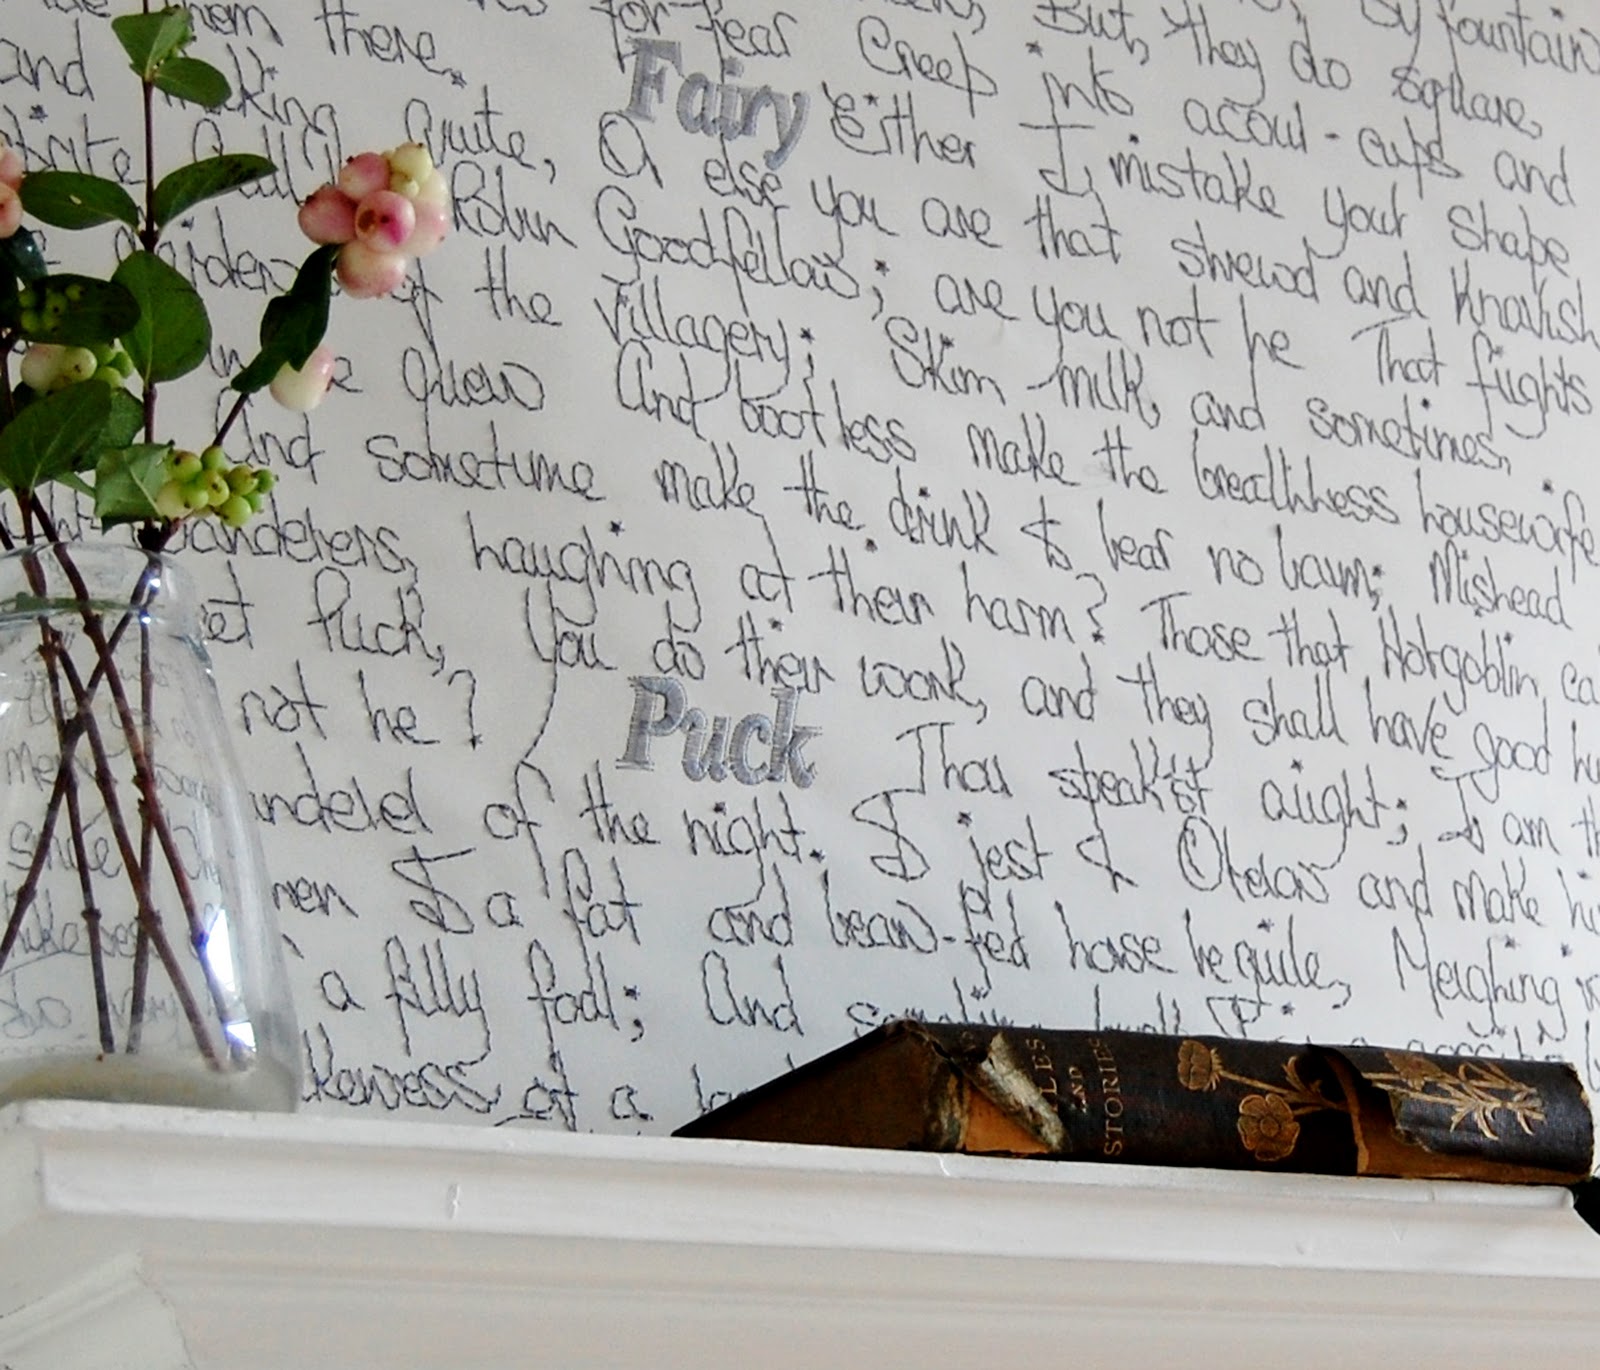 by fountain
But, they do square,
for fear Creep into acoul-cups and
them there. Fairy Either I mistake your shape
and making quite, Or else you are that shrewd and Knavish
Robin Goodfellow; are you not he That frights
of the villagery; Skim milk, and sometimes,
quern And bootless make the breathless housewife
And sometime make the drink to bear no barm; Mishead
wanderers, haughing at their harm? Those that Hobgoblin ca
et Puck, You do their work, and they shall have good
not he? Puck Thou speak'st aught; I am th
of the night. I jest to Oberon and make hi
men I a fat and bean-fed horse beguile, Neighing
a filly foal; And
keness of a
LES
AND
STORIES